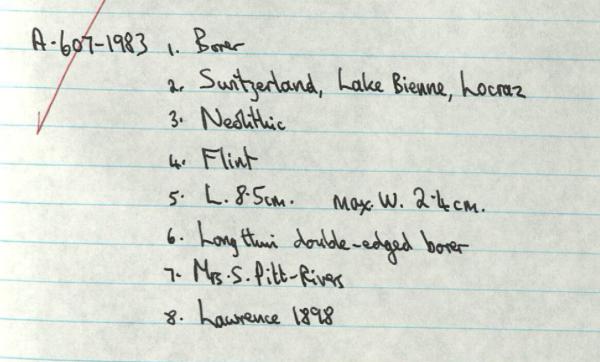 A·607-1983 1. Borer
2. Switzerland, Lake Bienne, Locraz
3. Neolithic
4. Flint
5. L. 8·5cm. Max. W. 2·4cm.
6. Long thin double-edged borer
7. Mrs. S. Pitt-Rivers
8. Lawrence 1898